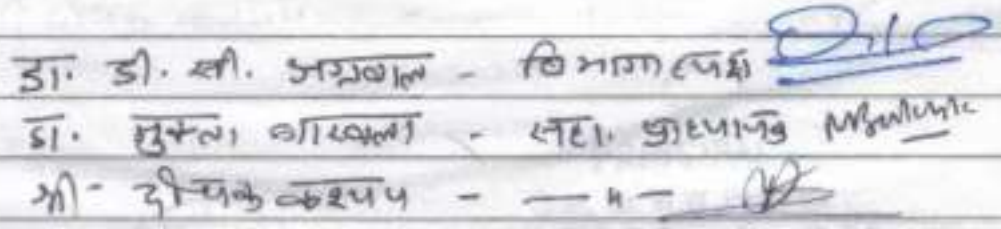 डा. डी. सी. अग्रवाल - विभागाध्यक्ष
डा. - सहा. प्राध्यापक
श्री - दीपक कश्यप - — " —